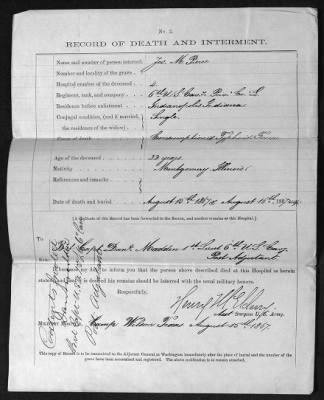 No. 2.
RECORD OF DEATH AND INTERMENT.
Name and number of person interred, Jas. M. Pierce
Number and locality of the grave,
Hospital number of the deceased 4.
Regiment, rank, and company, 6th U.S. Cav.
Residence before enlistment Indianapolis Indiana
Conjugal condition, (and if married, Single
the residence of the widow)
Cause of death Typhoid Fever
Age of the deceased 33 years.
Nativity Montgomery Illinois
References and remarks
Date of death and burial, August 15th 1867 August 15th, 1867
(A duplicate of this Record has been forwarded to the Sexton, and another remains at this Hospital.)
To
Madden 1st Lieut 6th U.S. Cav.
Post Adjutant
to inform you that the person above described died at this Hospital as herein
is desired his remains should be interred with the usual military honors.
Respectfully,
Surgeon U. S. Army.
Camp Wilson Texas August 15th 1867.
This copy of Record is to be transmitted to the Adjutant General at Washington immediately after the place of burial and the number of the grave
have been ascertained and registered. The above notification is to remain attached.